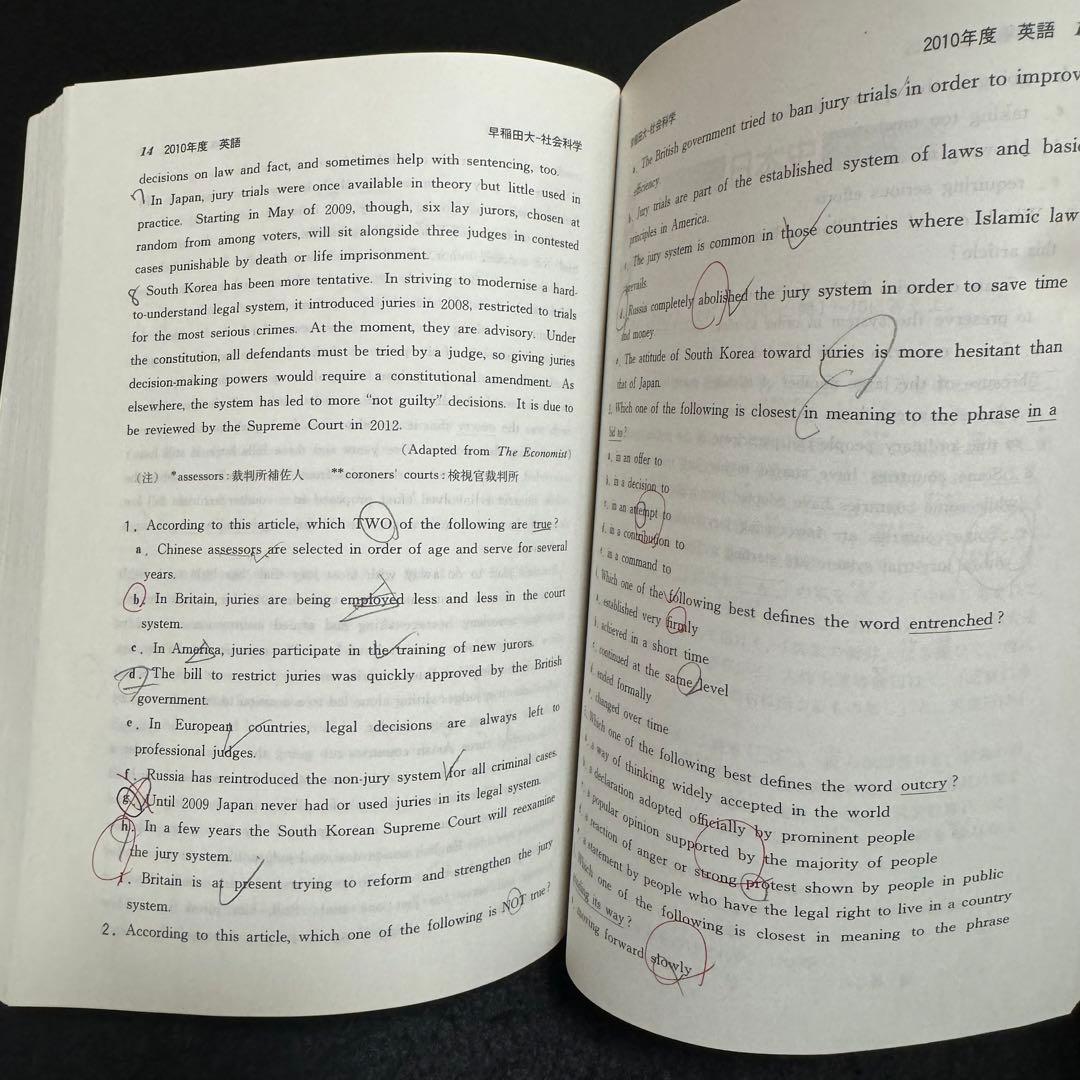 14 2010年度 英語 早稲田大-社会科学
decisions on law and fact, and sometimes help with sentencing, too.
7 In Japan, jury trials were once available in theory but little used in
practice. Starting in May of 2009, though, six lay jurors, chosen at
random from among voters, will sit alongside three judges in contested
cases punishable by death or life imprisonment.
8 South Korea has been more tentative. In striving to modernise a hard-
to-understand legal system, it introduced juries in 2008, restricted to trials
for the most serious crimes. At the moment, they are advisory. Under
the constitution, all defendants must be tried by a judge, so giving juries
decision-making powers would require a constitutional amendment. As
elsewhere, the system has led to more “not guilty” decisions. It is due to
be reviewed by the Supreme Court in 2012.
(Adapted from The Economist)
(注) *assessors:裁判所補佐人 **coroners' courts:検視官裁判所
1. According to this article, which TWO of the following are true?
a. Chinese assessors are selected in order of age and serve for several
years.
b. In Britain, juries are being employed less and less in the court
system.
c. In America, juries participate in the training of new jurors.
d. The bill to restrict juries was quickly approved by the British
government.
e. In European countries, legal decisions are always left to
professional judges.
f. Russia has reintroduced the non-jury system for all criminal cases.
g. Until 2009 Japan never had or used juries in its legal system.
h. In a few years the South Korean Supreme Court will reexamine
the jury system.
i. Britain is at present trying to reform and strengthen the jury
system.
2. According to this article, which one of the following is NOT true?
2010年度 英語
早稲田大-社会科学
a. The British government tried to ban jury trials in order to improv
efficiency.
b. Jury trials are part of the established system of laws and basi
principles in America.
c. The jury system is common in those countries where Islamic law
prevails.
d. Russia completely abolished the jury system in order to save time
and money.
e. The attitude of South Korea toward juries is more hesitant than
that of Japan.
Which one of the following is closest in meaning to the phrase in a
bid to?
a. in an offer to
b. in a decision to
c. in an attempt to
d. in a contribution to
e. in a command to
Which one of the following best defines the word entrenched?
a. established very firmly
b. achieved in a short time
c. continued at the same level
d. ended formally
e. changed over time
Which one of the following best defines the word outcry?
a way of thinking widely accepted in the world
a declaration adopted officially by prominent people
a popular opinion supported by the majority of people
a reaction of anger or strong protest shown by people in public
a statement by people who have the legal right to live in a country
Which one of the following is closest in meaning to the phrase
its way?
moving forward slowly